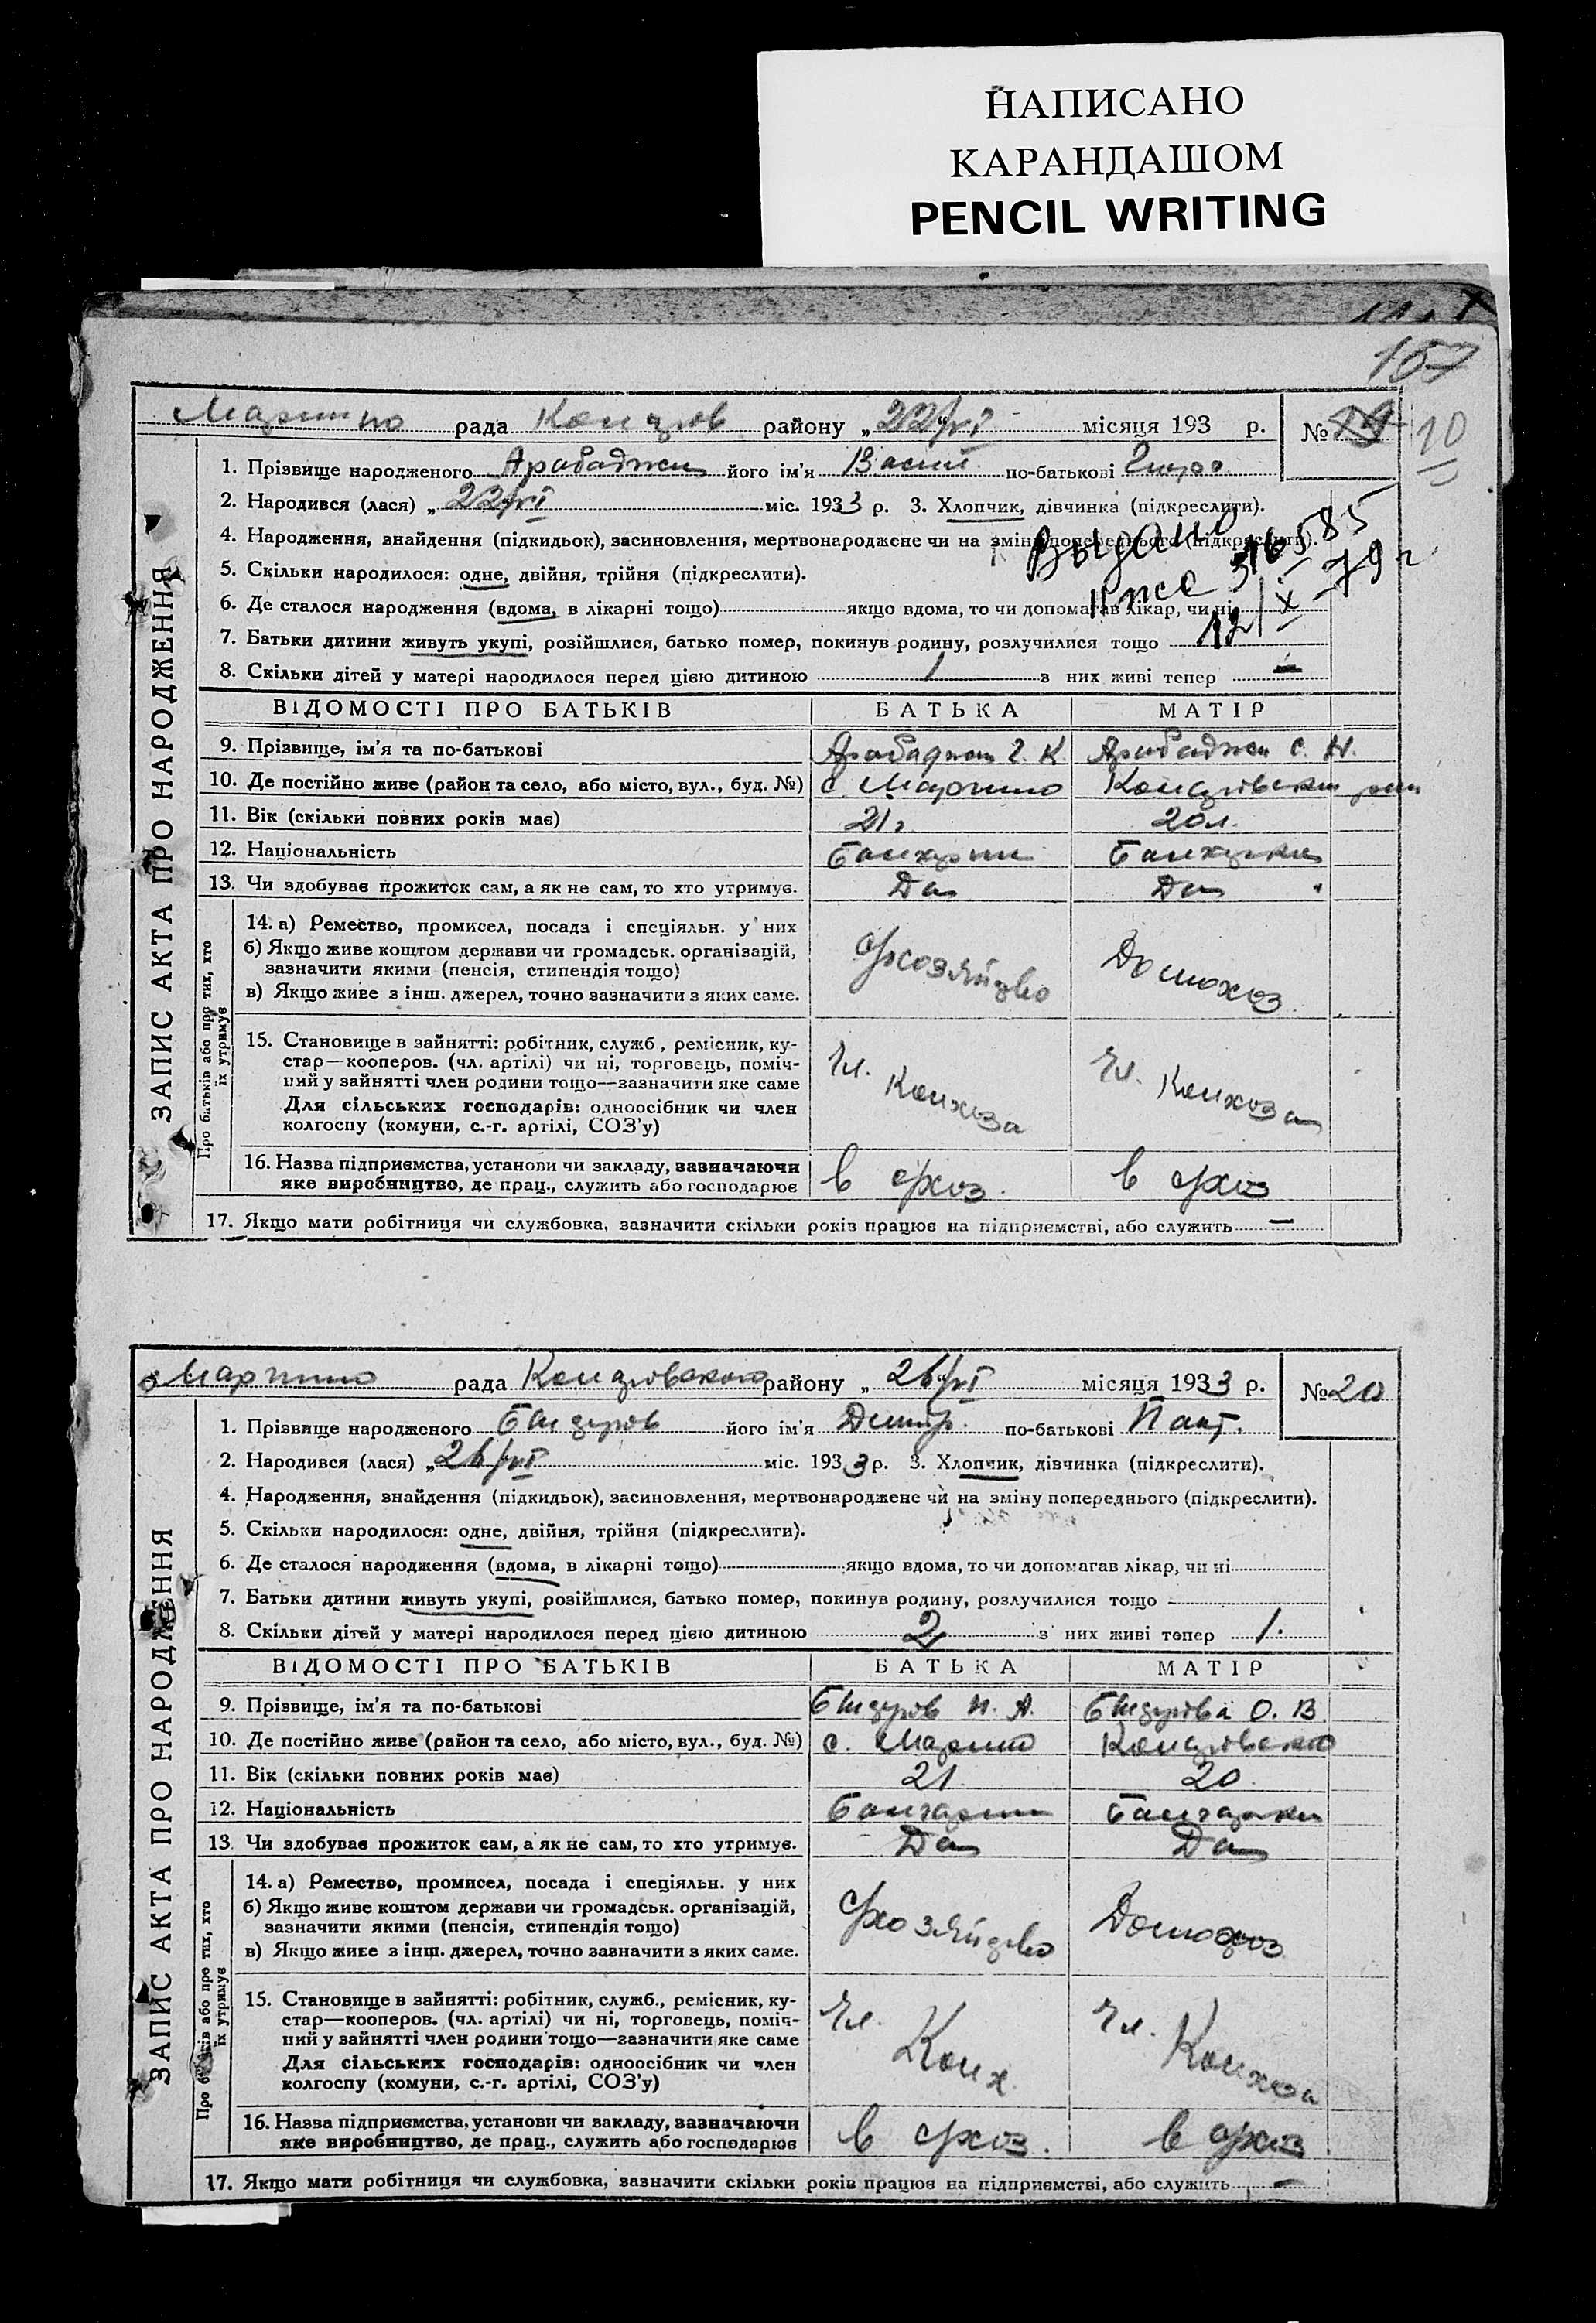 НАПИСАНО
КАРАНДАШОМ
PENCIL WRITING
167
рада района „22/VI місяця 193 р. № 10
1. Прізвище народженого Арабаджи його ім'я Васил по-батькові
2. Народився (лася) „22/VI міс. 1933 р. 3. Хлопчик, дівчинка (підкреслити).
4. Народження, знайдення (підкидьок), засиновлення, мертвонароджене чи на зміну попереднього (підкреслити).
Выдано
5. Скільки народилося: одне, двійня, трійня (підкреслити).
316585
6. Де сталося народження (вдома, в лікарні тощо) якщо вдома, то чи допомагав лікар, чи ні
12/X-79 г
7. Батьки дитини живуть укупі, розійшлися, батько помер, покинув родину, розлучилися тощо
8. Скільки дітей у матері народилося перед цією дитиною 1 з них живі тепер —
ВІДОМОСТІ ПРО БАТЬКІВ БАТЬКА МАТІР
9. Прізвище, ім'я та по-батькові Арабаджи Г. К. Арабаджи С. Н.
10. Де постійно живе (район та село, або місто, вул., буд. №) с.
11. Вік (скільки повних років має) 21 г 20 л.
12. Національність
13. Чи здобуває прожиток сам, а як не сам, то хто утримує. Да Да
14. а) Ремество, промисел, посада і спеціяльн. у них
б) Якщо живе коштом держави чи громадськ. організацій,
зазначити якими (пенсія, стипендія тощо)
в) Якщо живе з інш. джерел, точно зазначити з яких саме.
Домохоз
15. Становище в зайнятті: робітник, служб., ремісник, ку-
стар—кооперов. (чл. артілі) чи ні, торговець, поміч-
ний у зайнятті член родини тощо—зазначити яке саме
Для сільських господарів: одноосібник чи член
колгоспу (комуни, с.-г. артілі, СОЗ'у)
Чл. Колхоза Чл. Колхоза
16. Назва підприємства, установи чи закладу, зазначаючи
яке виробництво, де прац., служить або господарює в с/хоз. в с/хоз
17. Якщо мати робітниця чи службовка, зазначити скільки років працює на підприємстві, або служить —
ЗАПИС АКТА ПРО НАРОДЖЕННЯ
Про батьків або про тих, хто
їх утримує
рада району „26/VI місяця 1933 р. № 20
1. Прізвище народженого його ім'я Дмитр. по-батькові Пант.
2. Народився (лася) „26/VI міс. 1933 р. 3. Хлопчик, дівчинка (підкреслити).
4. Народження, знайдення (підкидьок), засиновлення, мертвонароджене чи на зміну попереднього (підкреслити).
5. Скільки народилося: одне, двійня, трійня (підкреслити).
6. Де сталося народження (вдома, в лікарні тощо) якщо вдома, то чи допомагав лікар, чи ні
7. Батьки дитини живуть укупі, розійшлися, батько помер, покинув родину, розлучилися тощо
8. Скільки дітей у матері народилося перед цією дитиною 2 з них живі тепер 1.
ВІДОМОСТІ ПРО БАТЬКІВ БАТЬКА МАТІР
9. Прізвище, ім'я та по-батькові О. В.
10. Де постійно живе (район та село, або місто, вул., буд. №) с.
11. Вік (скільки повних років має) 21 20
12. Національність
13. Чи здобуває прожиток сам, а як не сам, то хто утримує. Да Да
14. а) Ремество, промисел, посада і спеціяльн. у них
б) Якщо живе коштом держави чи громадськ. організацій,
зазначити якими (пенсія, стипендія тощо)
в) Якщо живе з інш. джерел, точно зазначити з яких саме.
Домохоз
15. Становище в зайнятті: робітник, служб., ремісник, ку-
стар—кооперов. (чл. артілі) чи ні, торговець, поміч-
ний у зайнятті член родини тощо—зазначити яке саме
Для сільських господарів: одноосібник чи член
колгоспу (комуни, с.-г. артілі, СОЗ'у)
Чл. Колх. Чл. Колхоза
16. Назва підприємства, установи чи закладу, зазначаючи
яке виробництво, де прац., служить або господарює в с/хоз. в с/хоз
17. Якщо мати робітниця чи службовка, зазначити скільки років працює на підприємстві, або служить —
ЗАПИС АКТА ПРО НАРОДЖЕННЯ
Про батьків або про тих, хто
їх утримує